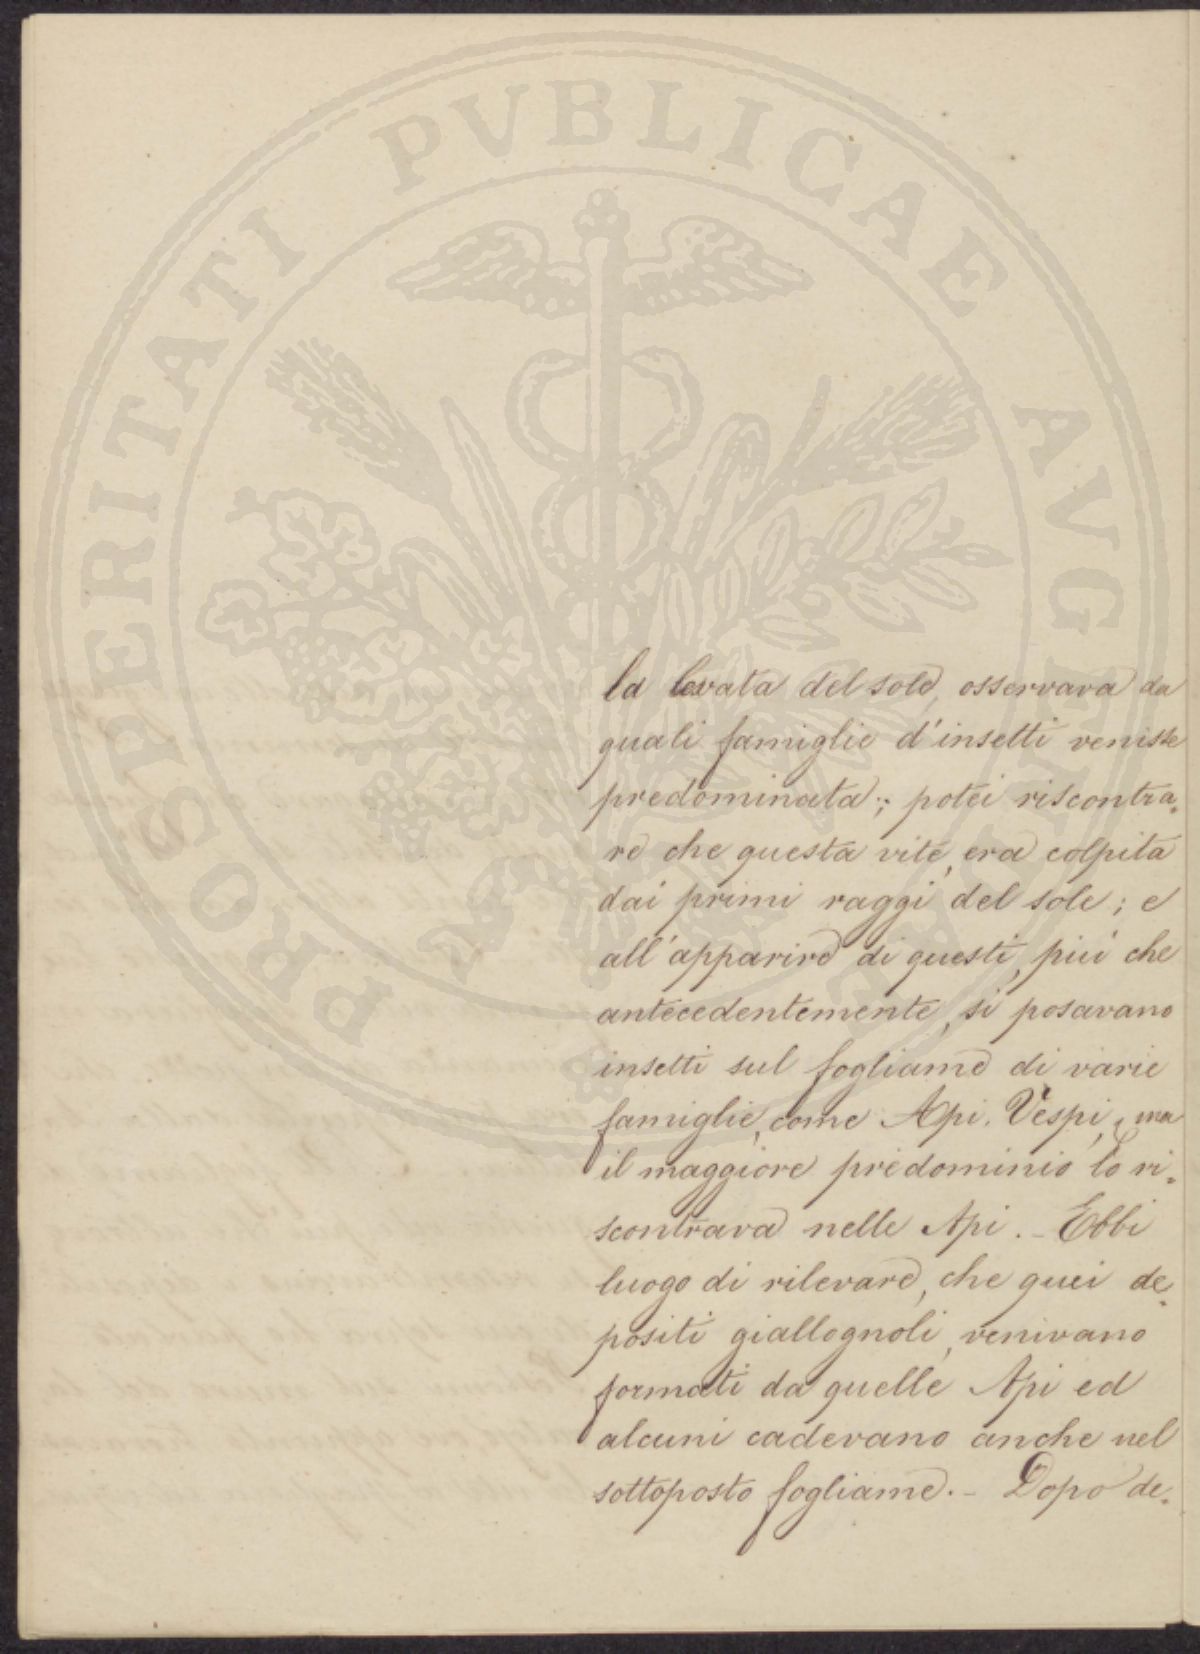 PROSPERITATI PVBLICAE AVGENDAE
la levata del sole, osservava da
quali famiglie d'insetti venisse
predominata; potei riscontra=
re che questa vite, era colpita
dai primi raggi del sole; e
all'apparire di questi, più che
antecedentemente, si posavano
insetti sul fogliame di varie
famiglie, come Api, Vespi, ma
il maggiore predominio lo ri=
scontrava nelle Api. - Ebbi
luogo di rilevare, che quei de=
positi giallognoli, venivano
formati da quelle Api ed
alcuni cadevano anche nel
sottoposto fogliame. - Dopo de=